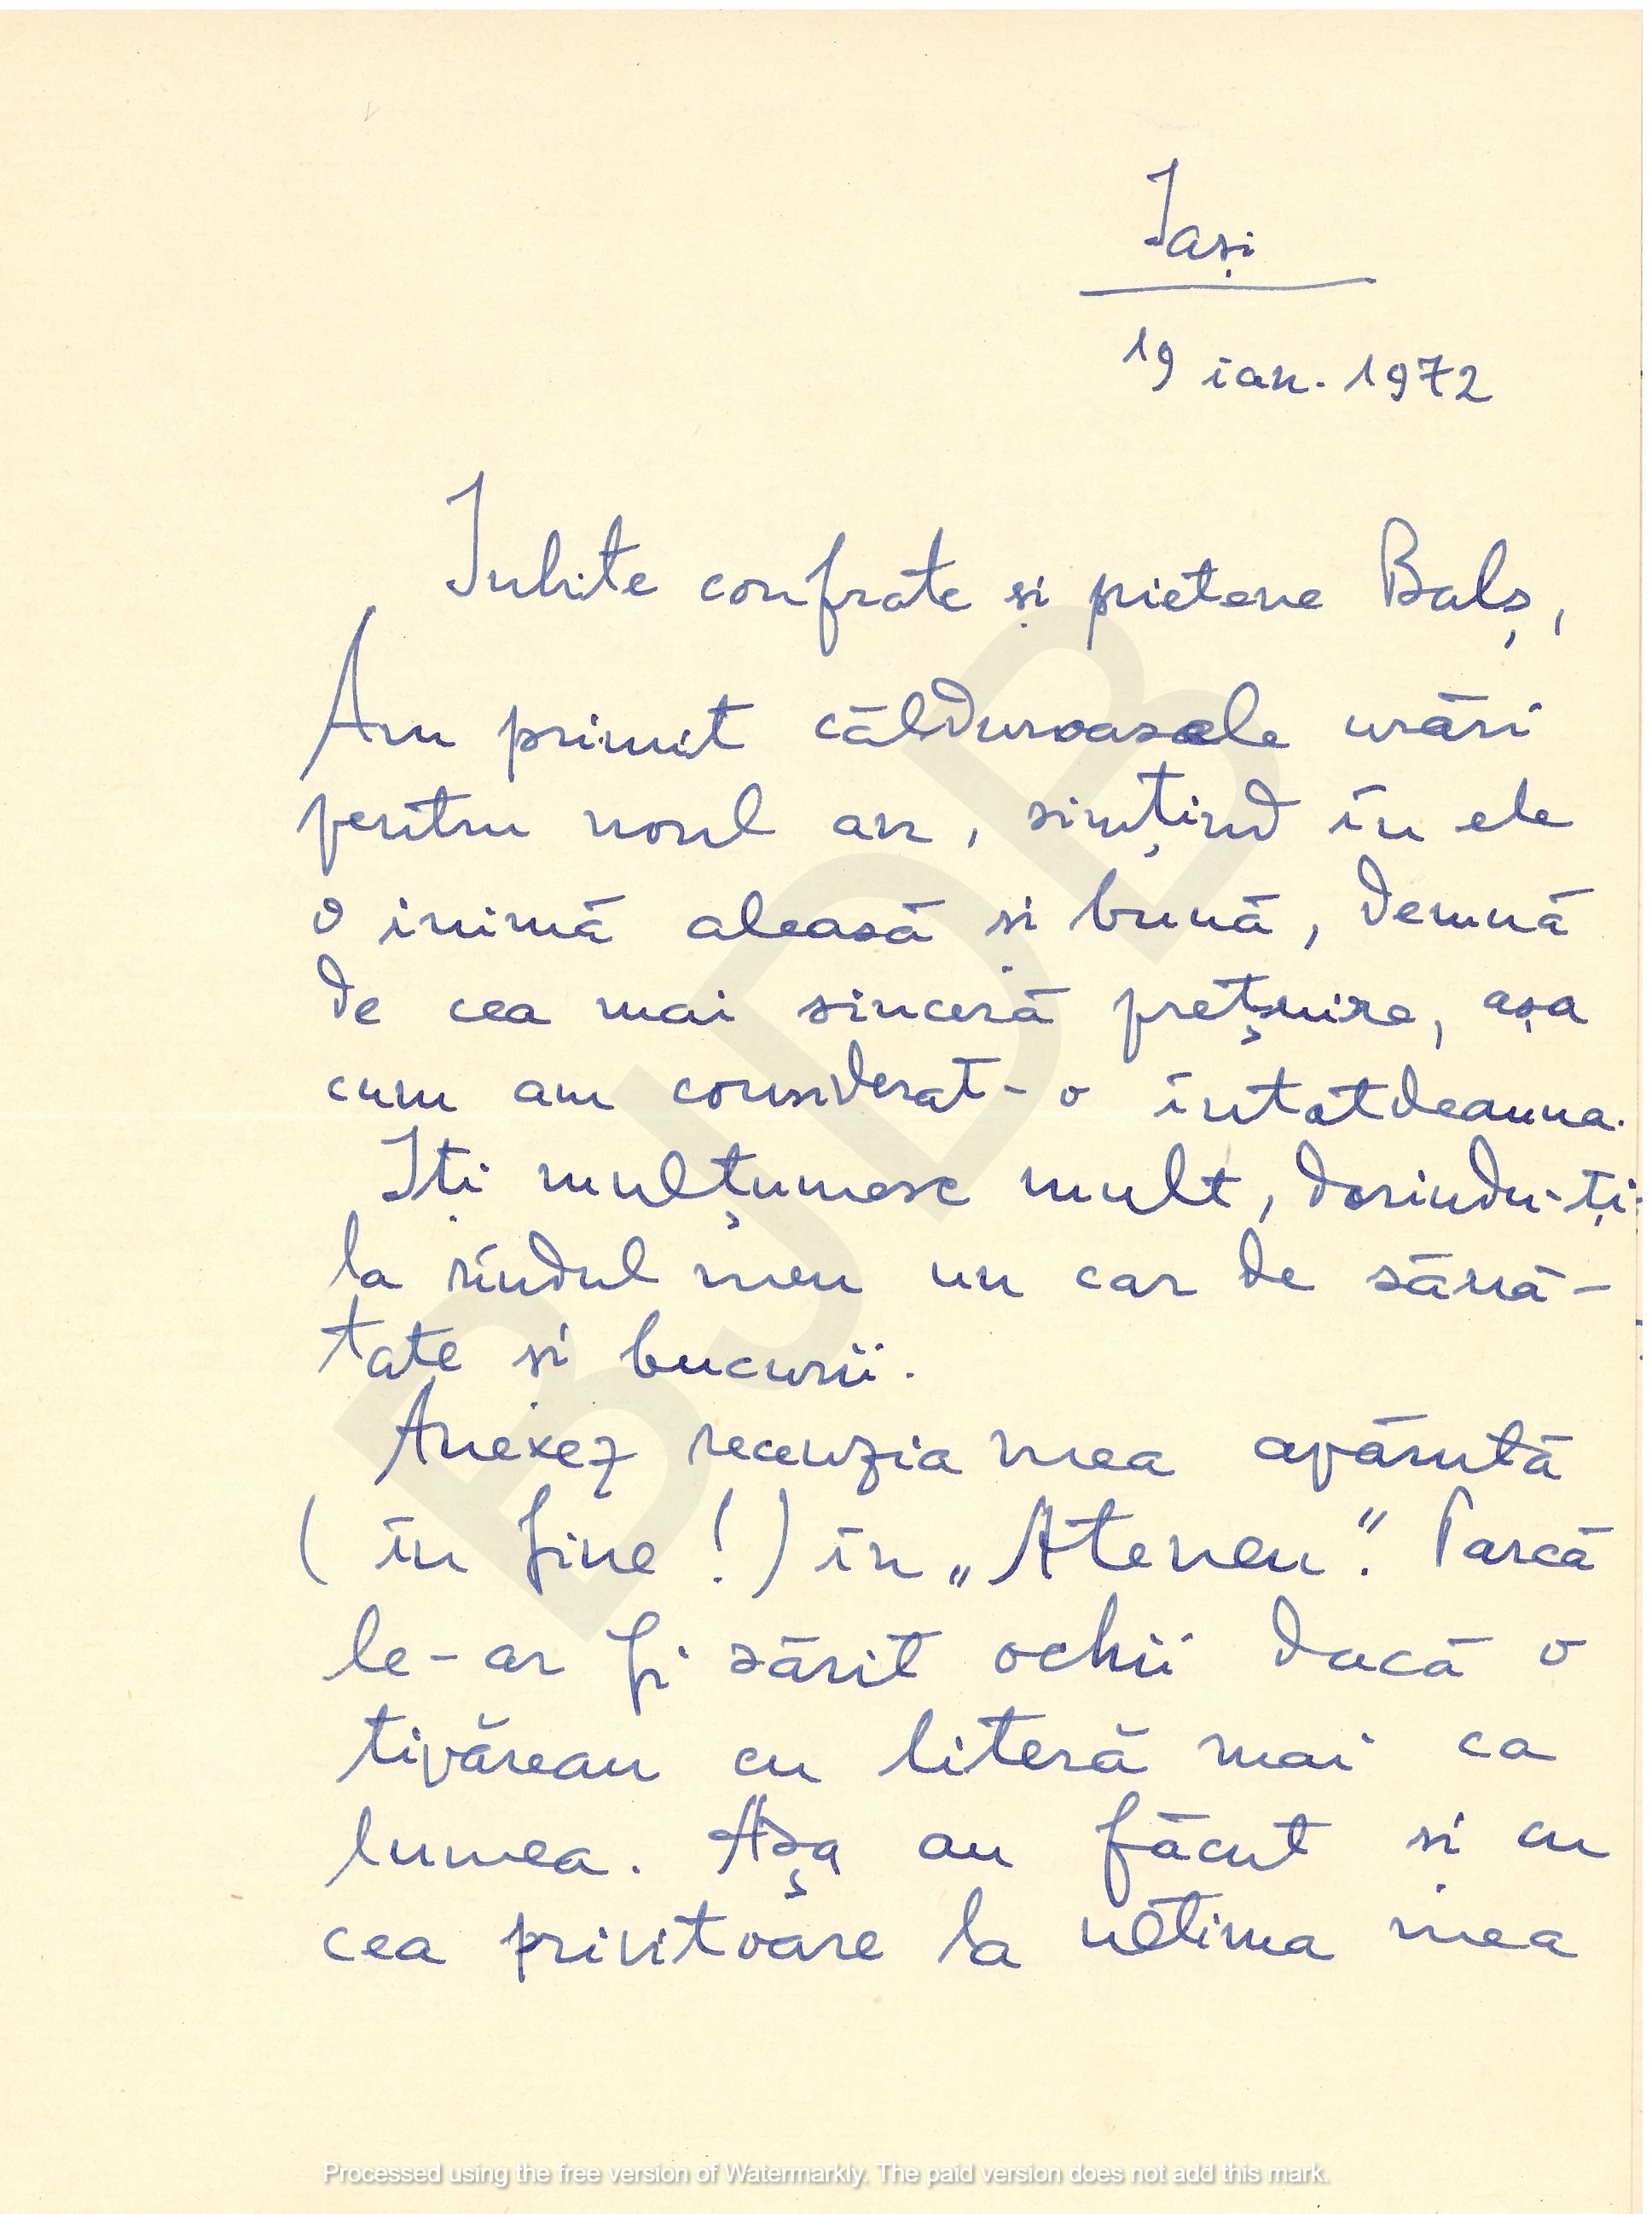 Iași
19 ian. 1972
Iubite confrate și prietene Balș,
Am primit călduroasele urări
pentru noul an, simțind în ele
o inimă aleasă și bună, demnă
de cea mai sinceră prețuire, așa
cum am considerat-o întotdeauna.
Iți mulțumesc mult, dorindu-ți
la rîndul meu un car de sănă-
tate și bucurii.
Anexez recenzia mea apărută
(în fine!) în „Ateneu". Parcă
le-ar fi sărit ochii dacă o
tipăreau cu literă mai ca
lumea. Așa au făcut și cu
cea privitoare la ultima mea
BJDB
Processed using the free version of Watermarkly. The paid version does not add this mark.